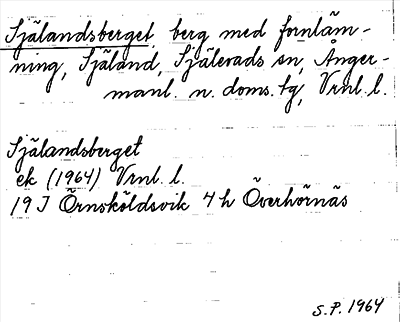 Själandsberget, berg med fornläm-
ning, Själand, Själevads sn, Ånger-
manl. n. doms. tg, Vrnl. l.
Själandsberget
ek (1964) Vrnl. l.
19 J Örnsköldsvik 4 h Överhörnäs
S.P. 1964